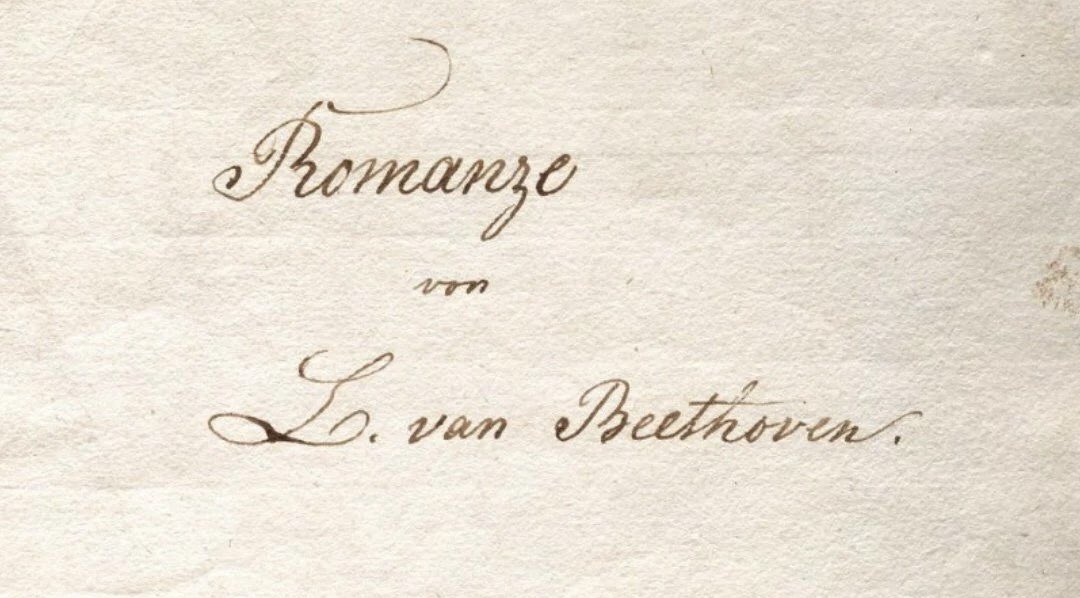 Romanze
von
L. van Beethoven.